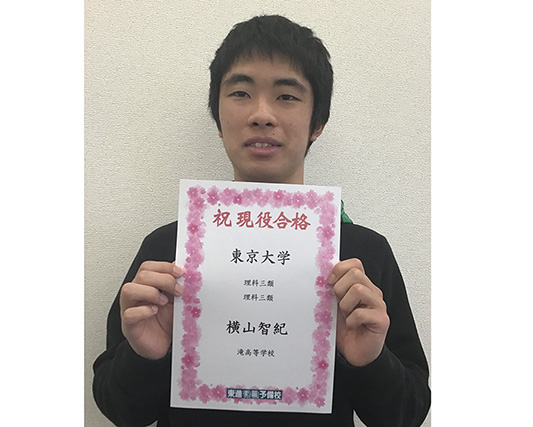 祝 現役合格
東京大学
理科三類
理科三類
横山智紀
滝高等学校
東進衛星予備校